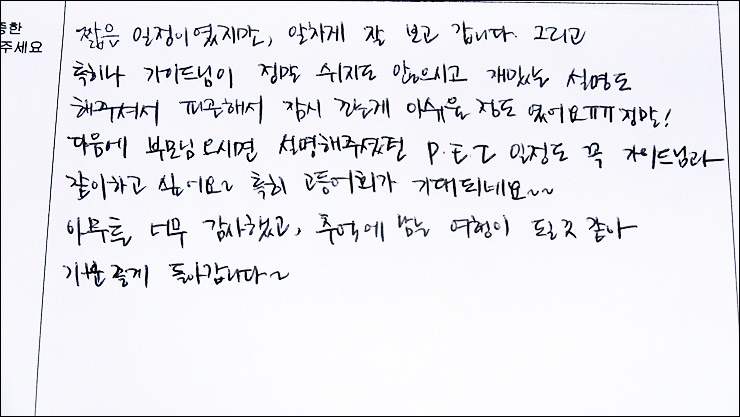 중한
주세요
짧은 일정이였지만, 알차게 잘 보고 갑니다. 그리고
특히나 가이드님이 정말 쉬지도 않으시고 재밌는 설명도
해주셔서 피곤해서 잠시 자는게 아쉬울 정도 였어요ㅠㅠ 정말!
다음에 부모님 오시면 설명해주셨던 P.E.I 일정도 꼭 가이드님과
같이하고 싶어요~ 특히 고등어회가 기대되네요~~
아무튼 너무 감사했고, 추억에 남는 여행이 될 것 같아
기분 좋게 돌아갑니다~